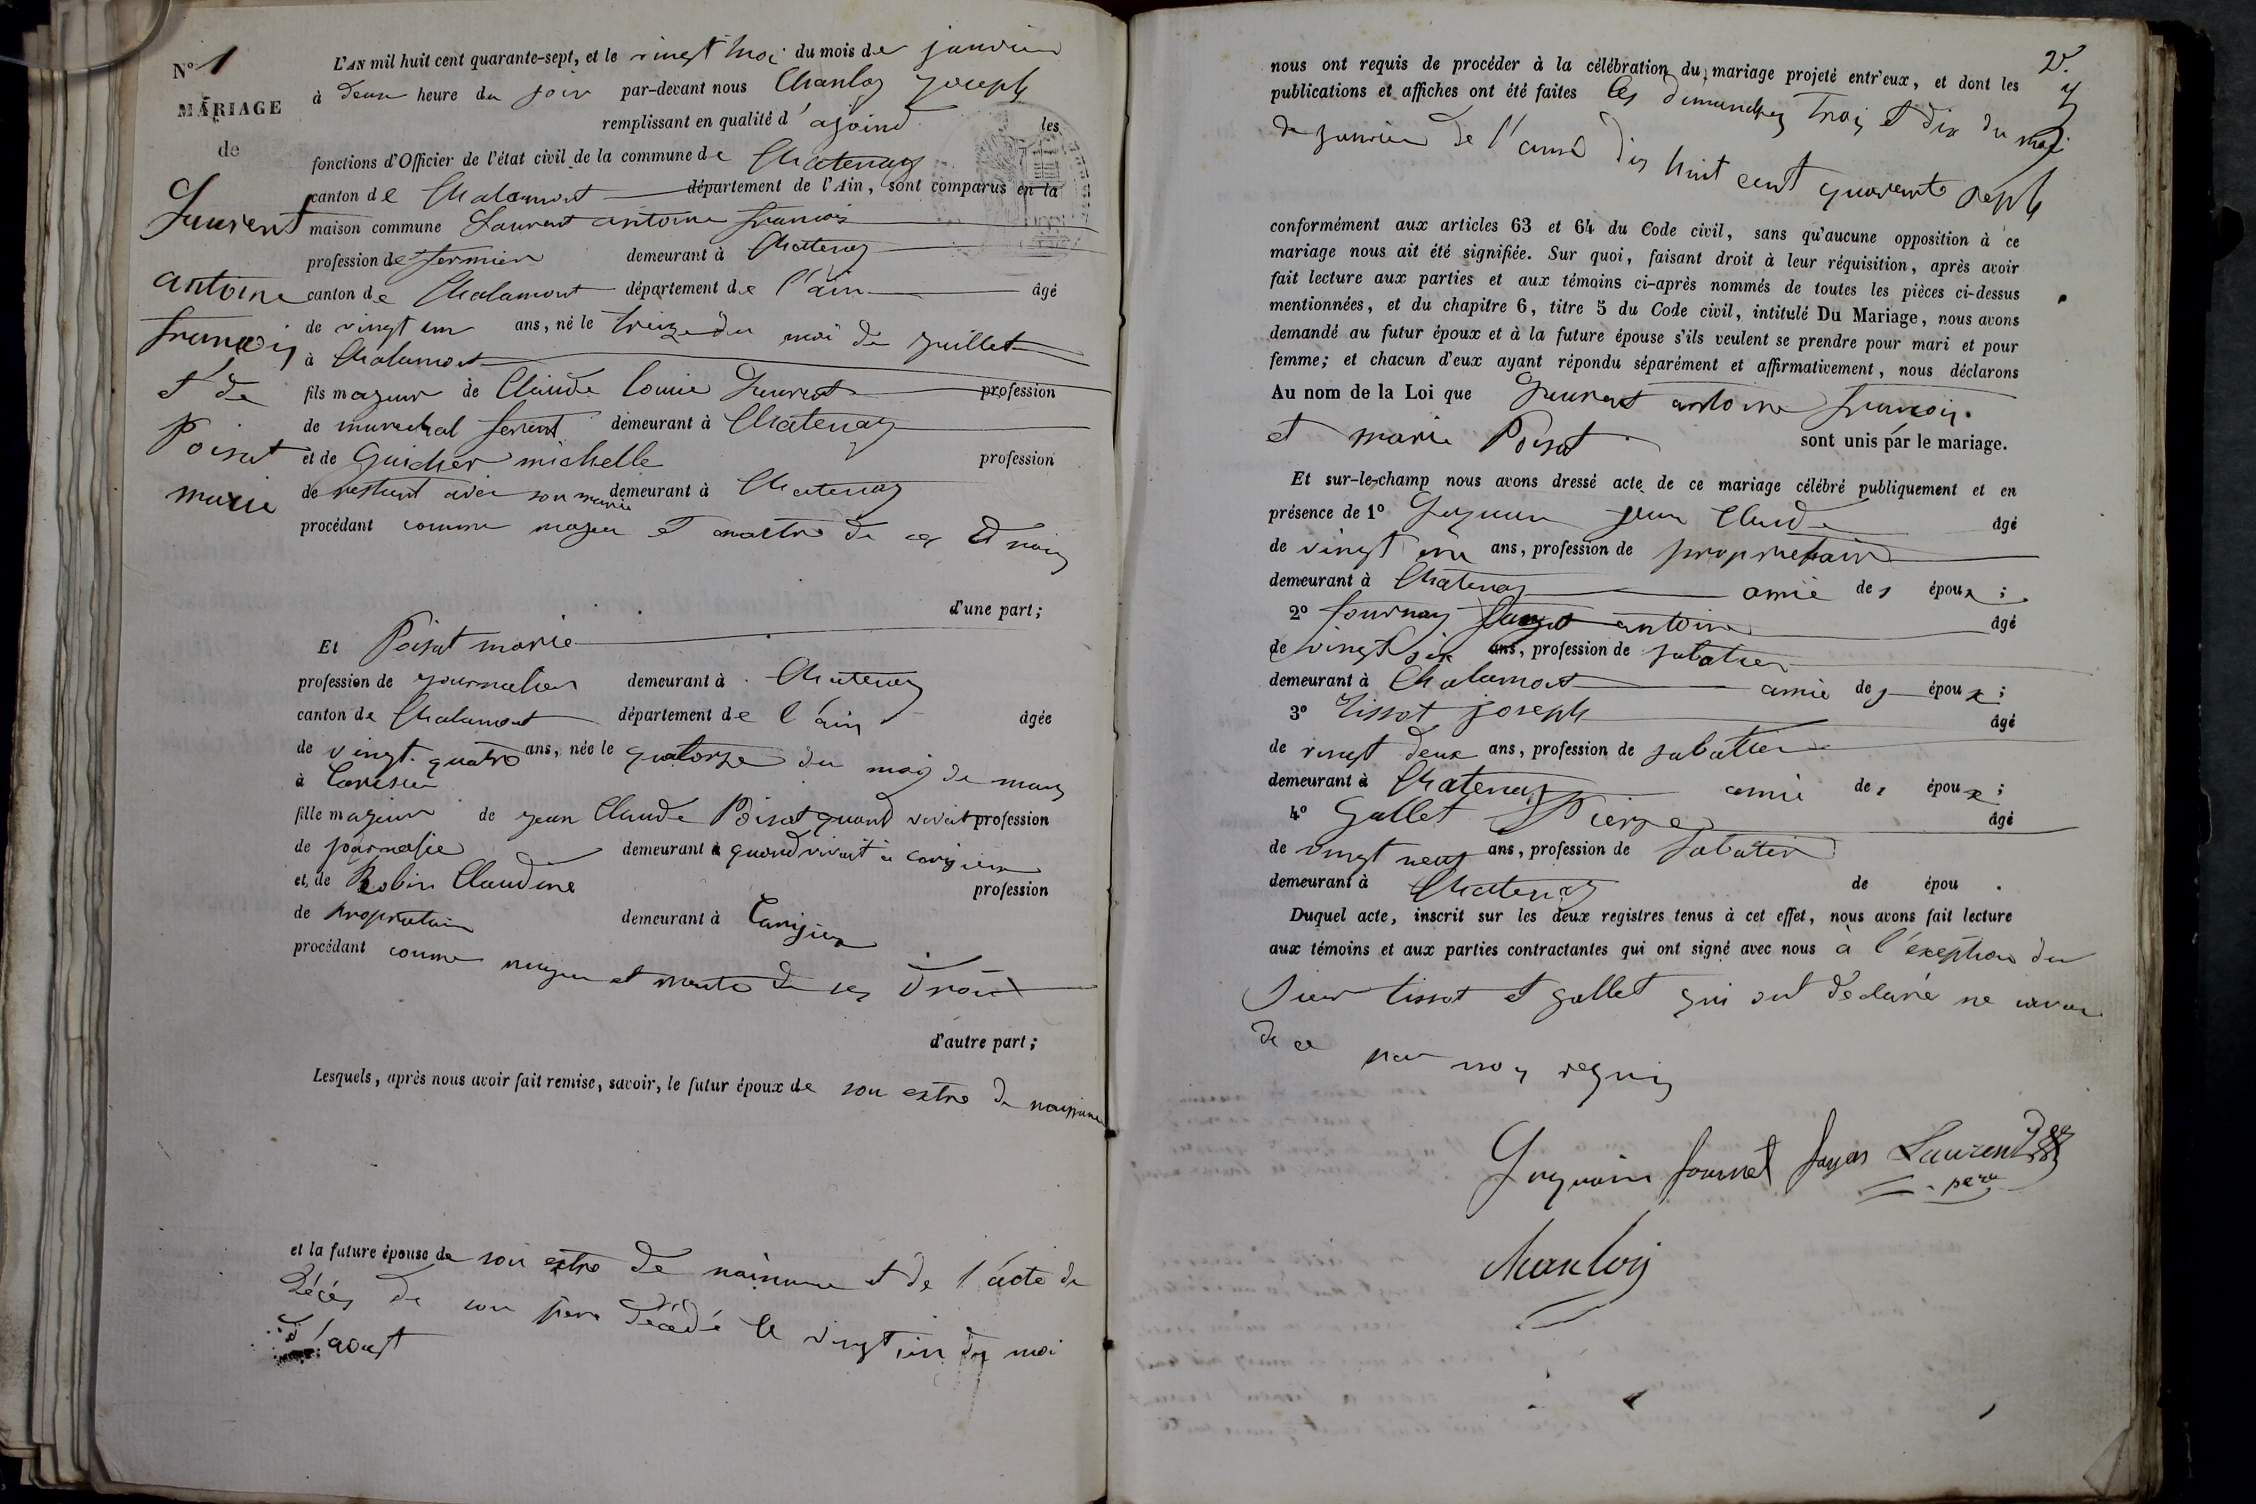 N° 1
MARIAGE
de
Laurent
antoine
francois
et de
Poisat
marie
L'AN mil huit cent quarante-sept, et le vingt troi du mois de janvier
à deux heure du soir par-devant nous Chanloy joseph
remplissant en qualité d'ajoind les
fonctions d'Officier de l'état civil de la commune de Chatenay
canton de Chalamont département de l'Ain, sont comparus en la
maison commune Laurent antoine francois
profession de fermier demeurant à Chatenay
canton de Chalamont département de l'ain âgé
de vingt un ans, né le treize du moi de juillet
à Chalamont
fils majeur de Claude louie Laurent profession
de marechal ferent demeurant à Chatenay
et de Guicher michelle profession
de restant avec son marie demeurant à Chatenay
procédant comme majeu et maitre de ces Droits
d'une part;
Et Poisat marie
profession de journalier demeurant à Chatenay
canton de Chalamont département de l'ain âgée
de vingt-quatre ans, née le quatorze du mois de mars
à
fille majeur de jean Claude Poisat quand vivait profession
de journalie demeurant à quand vivait à
et de Robin Claudine profession
de proprietair demeurant à
procédant comme majeu et maite de ses Droit
d'autre part;
Lesquels, après nous avoir fait remise, savoir, le futur époux de son extre de naissance
et la future épouse de son extre de naissance et de l'acte de
Décés de son pere Décédé le vingt un du moi
d'aoust
2e
nous ont requis de procéder à la célébration du mariage projeté entr'eux, et dont les
publications et affiches ont été faites les dimanches trois et dix du moi
de janvier de l'anné dix huit cent quarante sept
conformément aux articles 63 et 64 du Code civil, sans qu'aucune opposition à ce
mariage nous ait été signifiée. Sur quoi, faisant droit à leur réquisition, après avoir
fait lecture aux parties et aux témoins ci-après nommés de toutes les pièces ci-dessus
mentionnées, et du chapitre 6, titre 5 du Code civil, intitulé Du Mariage, nous avons
demandé au futur époux et à la future épouse s'ils veulent se prendre pour mari et pour
femme; et chacun d'eux ayant répondu séparément et affirmativement, nous déclarons
Au nom de la Loi que Laurent antoine francois
et marie Poisat sont unis par le mariage.
Et sur-le-champ nous avons dressé acte de ce mariage célébré publiquement et en
présence de 1° jean Claude âgé
de vingt ans, profession de propriétair
demeurant à Chatenay amie des époux;
2° fournay antoine âgé
de vingt six ans, profession de sabotier
demeurant à Chalamont amie des époux;
3° Tissot joseph âgé
de vingt deux ans, profession de sabotier
demeurant à Chatenay amie des époux;
4° Gallet Pierre âgé
de vingt neuf ans, profession de sabotier
demeurant à Chatenay de épou .
Duquel acte, inscrit sur les deux registres tenus à cet effet, nous avons fait lecture
aux témoins et aux parties contractantes qui ont signé avec nous à l'exeption du
Sieur tissot et gallet qui ont déclaré ne savoir
de ce par nous requis
Laurent
pere
Chanloy